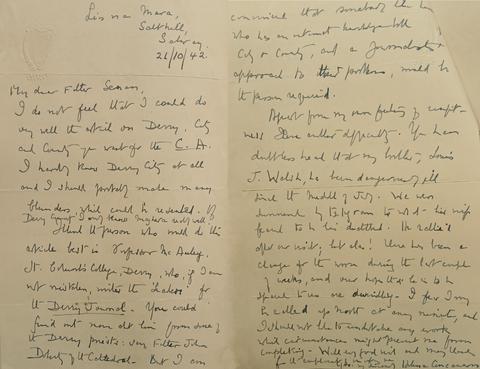 Lis na Mara,
Salthill,
Galway.
21/10/42.
My dear Father Senan,
I do not feel that I could do
very well the article on Derry, City
and County you want for the C. A.
I hardly know Derry City at all
and I should probably make many
blunders, which could be resented. Of
Derry County I don't know much either.
I think the person who would do this
article best is Professor McAuley,
St. Columb's College, Derry, who, if I am
not mistaken, writes the leaders for
the Derry Journal. You could
find out more about him from some of
the Derry priests: say Father John
Doherty of the Cathedral. But I am
convinced that somebody like him
who has an intimate knowledge both
City & County, and a journalist's
approach to their problems, would be
the person required.
Apart from my own feeling of incompet-
ness there is another difficulty. You have
doubtless heard that my brother, Louis
J. Walsh, has been dangerously ill
since the middle of July. We were
summoned by telegram to visit - his wife
feared to his deathbed. He rallied
after our visit; but alas! there has been a
change for the worse during the last couple
of weeks, and our hopes that he is to be
spared to us are dwindling. I fear I may
be called up North at any minute, and
I should not like to undertake any work
which circumstances might prevent me from
completing. With every good wish and many thanks
for the compliment,
Helena Concannon